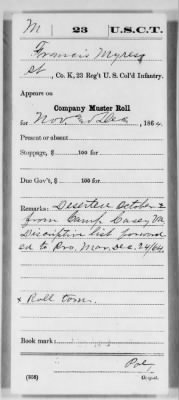 M 23 U.S.C.T.
Francis Myres
Co. K, 23 Reg't U. S. Col'd Infantry.
Appears on
Company Master Roll
for Nov & Dec, 1864.
Present or absent
Stoppage, $ 100 for
Due Gov't, $ 100 for
Remarks: Deserted October 2
from Camp Casey Va
Discriptive list forward
ed to Pro. Mar. Dec. 24/64
x Roll torn.
Book mark:
(358)
Copyist.